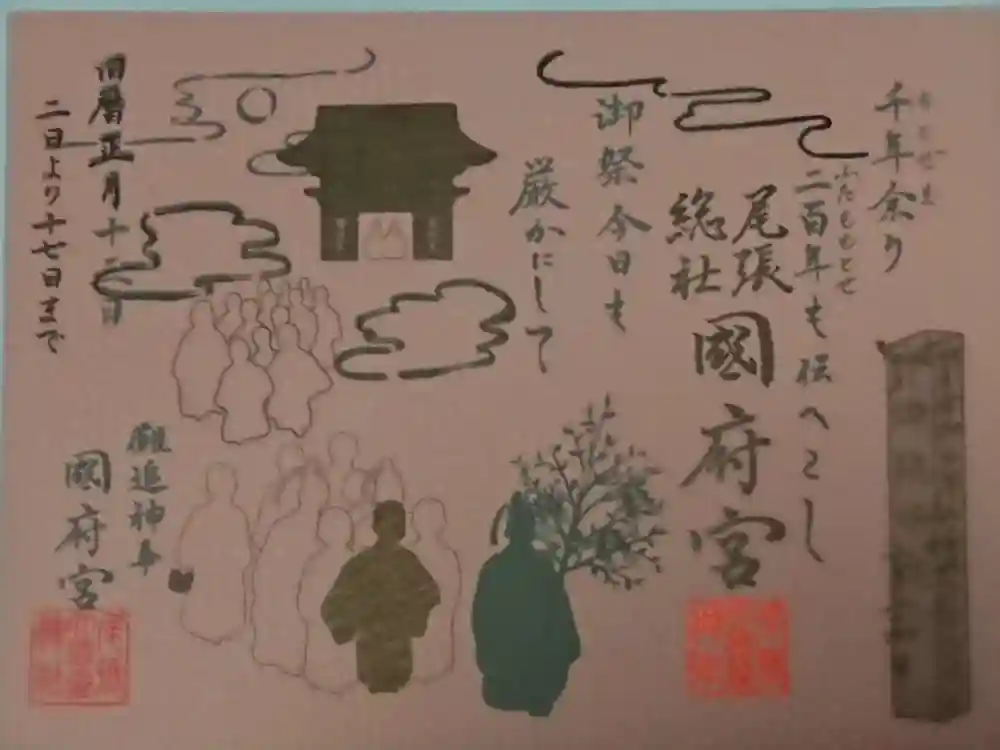 千年余り
二百年も伝へこし
ふたももとせ
尾張
総社
國府宮
御祭今日も
厳かにして
旧暦正月十二日
二日より十七日まで
儺追神事
國府宮